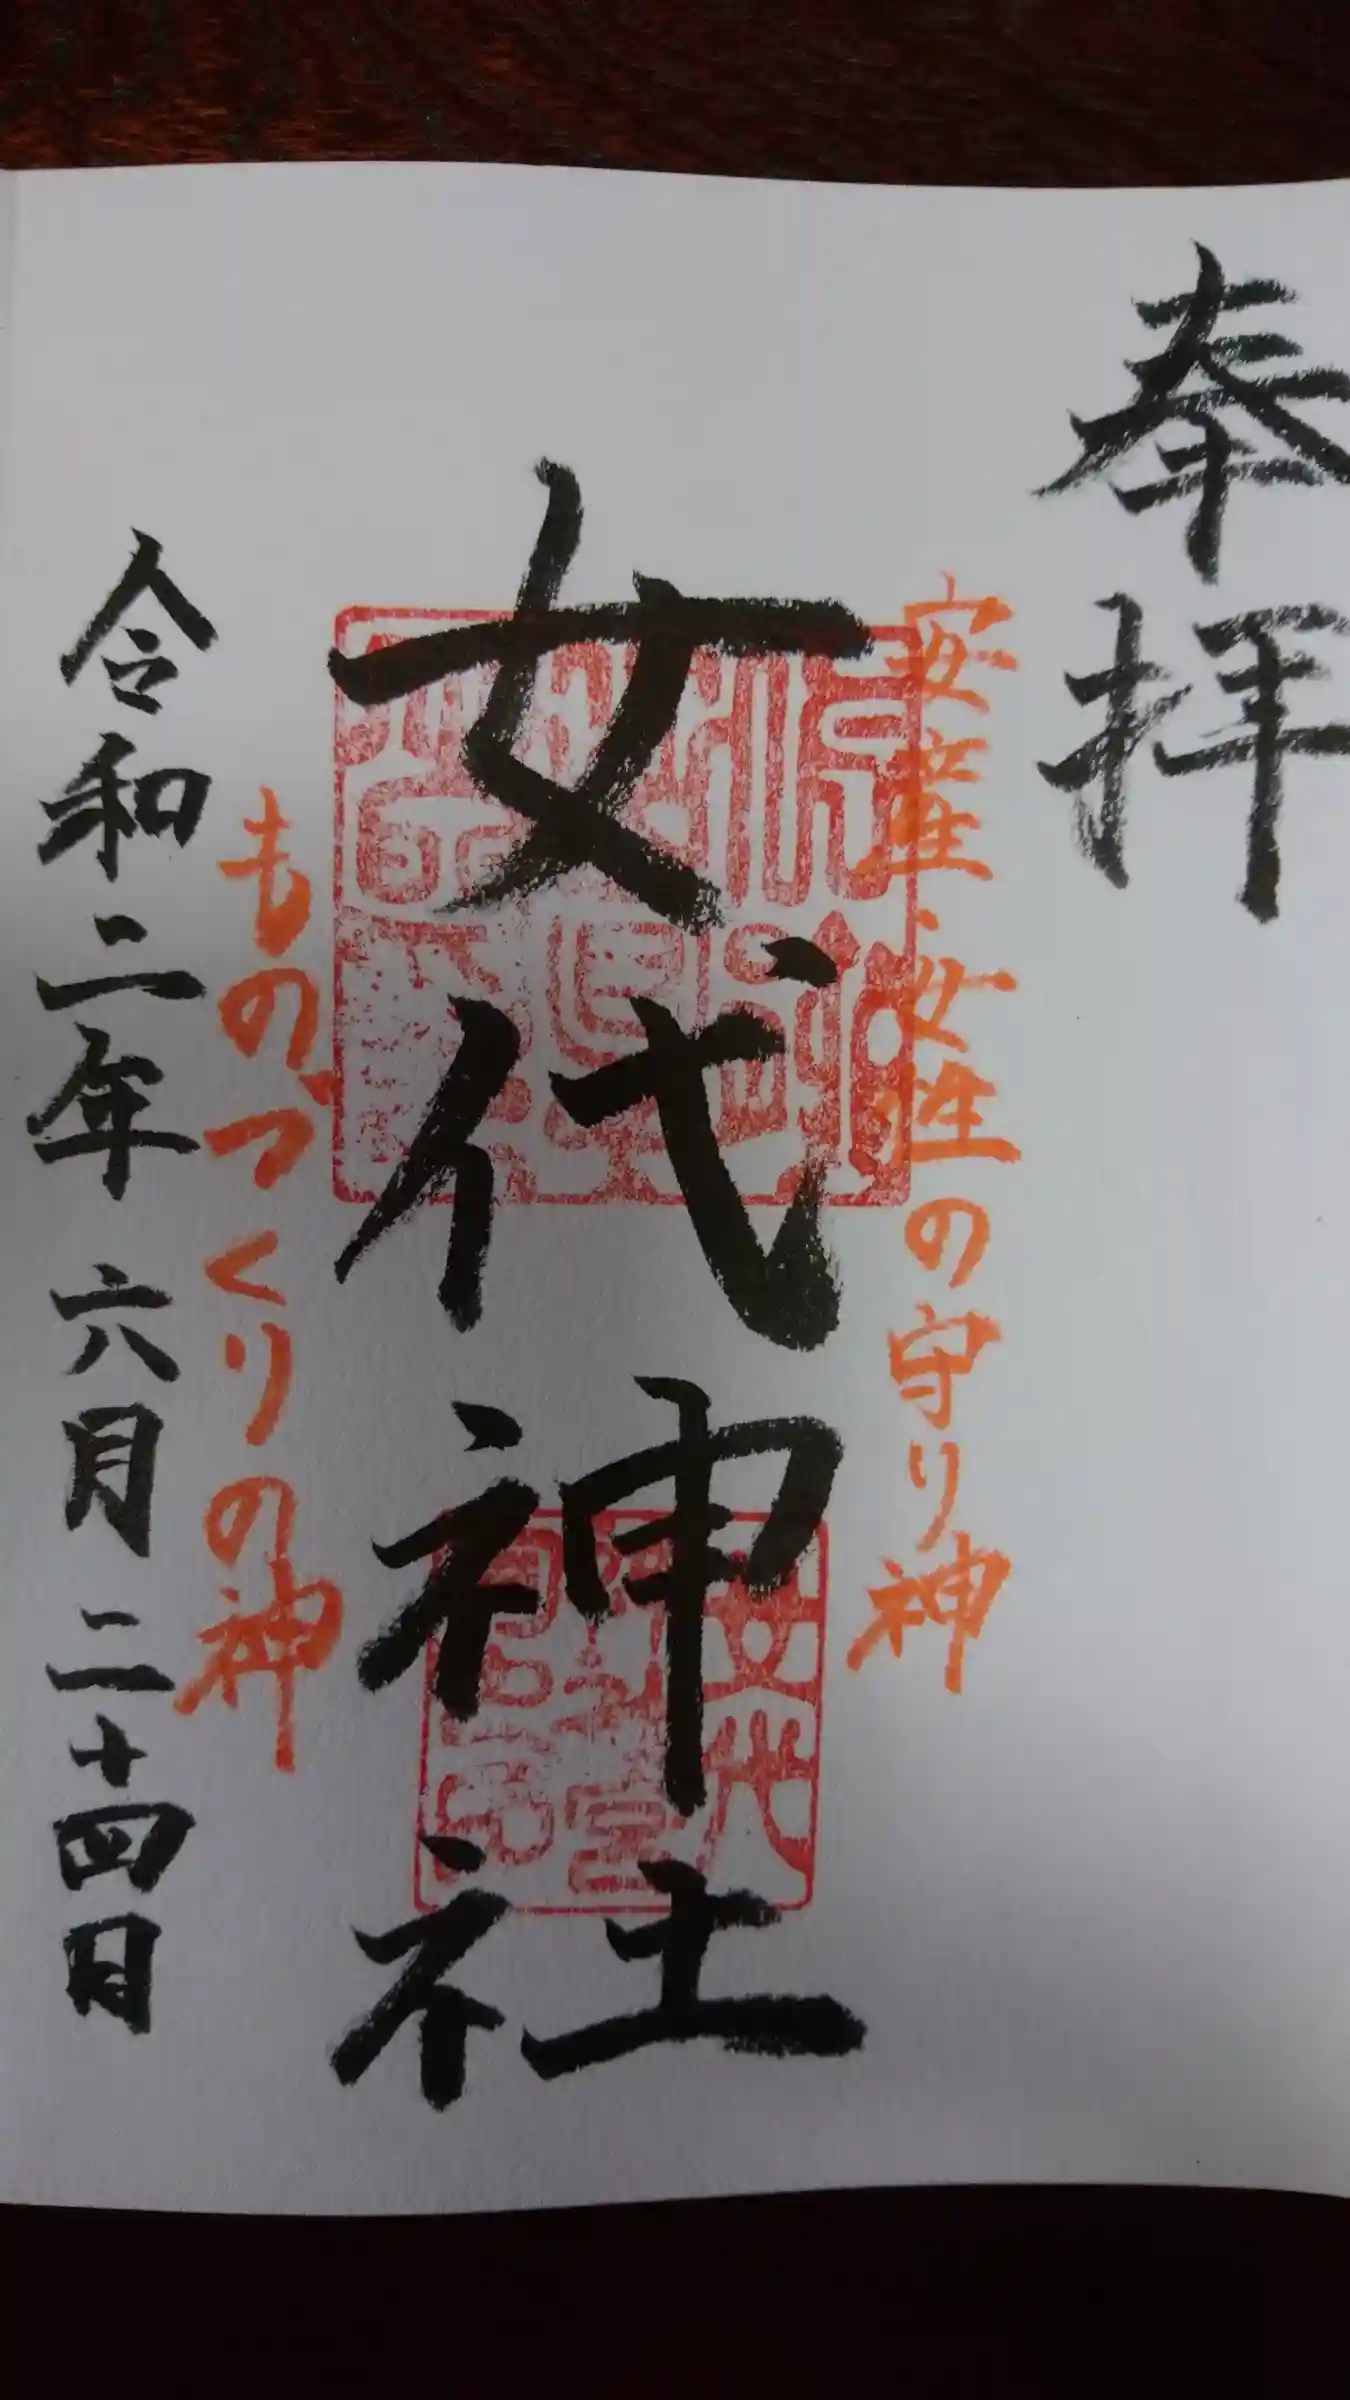 奉拝
安産・女性の守り神
女代神社
ものづくりの神
令和二年 六月 二十四日